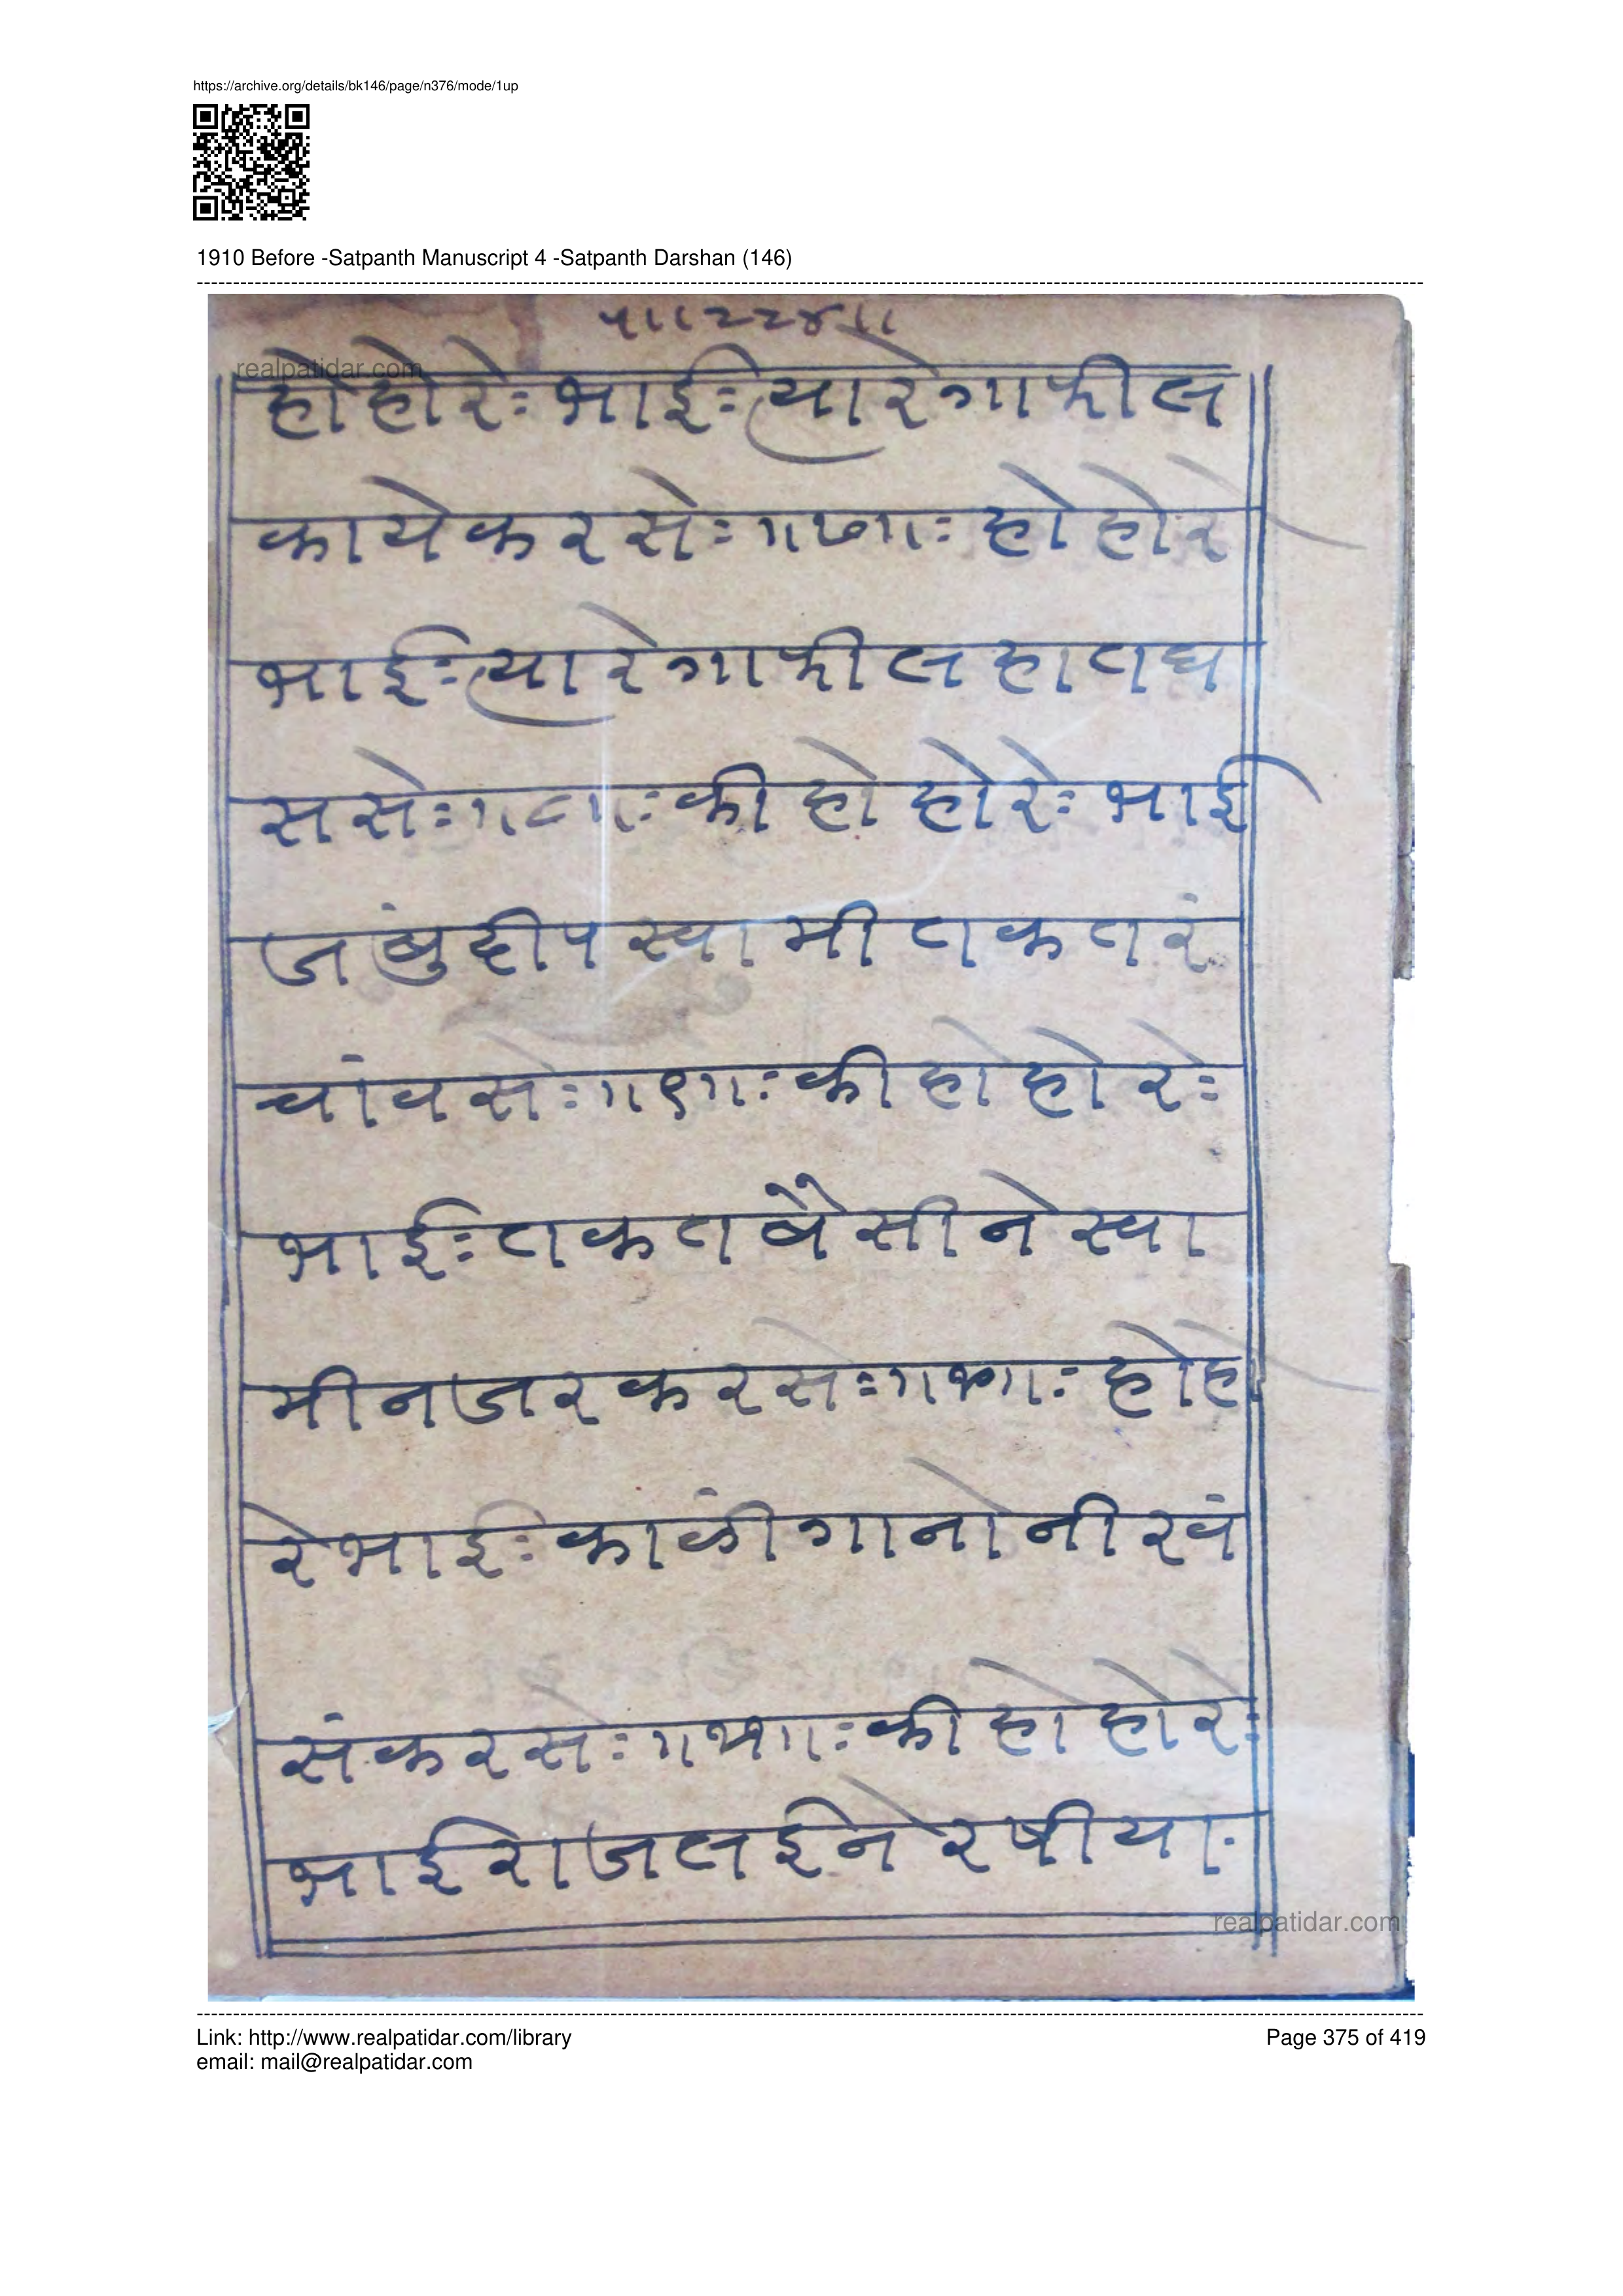 https://archive.org/details/bk146/page/n376/mode/1up
1910 Before -Satpanth Manuscript 4 -Satpanth Darshan (146)
५।।२२४।।
realpatidar.com
होहोरेः भाईः त्यारेगाफील
कायेकरसेः ।।७।।ः होहोरे
भाईः त्यारेगाफीलहातघ
ससेः ।।८।।ः की होहोरेः भाई
जंबुदीपस्वामीतकतरं
चांवसेः ।।९।।ः की होहोरेः
भाईः तकतबैसीनेस्वा
मीनजरकरसेः होहो
रेभाईः काळींगानोनीरवं
संकरसेः की होहोरेः
भाईराजलईनेरषीयाः
realpatidar.com
Link: http://www.realpatidar.com/library
email: mail@realpatidar.com
Page 375 of 419